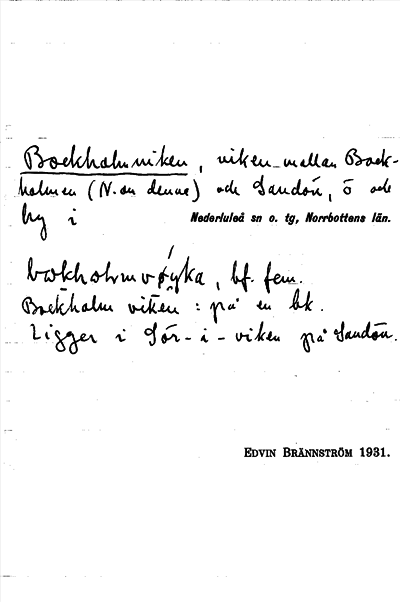 Bockholmviken, viken mellan Bock-
holmen (N. om denna) och Sandön, ö och
by i Nederluleå sn o. tg, Norrbottens län.
bf. fem.
Bockholm viken : på en bk.
Ligger i Sör-i-viken på Sandön.
EDVIN BRÄNNSTRÖM 1931.